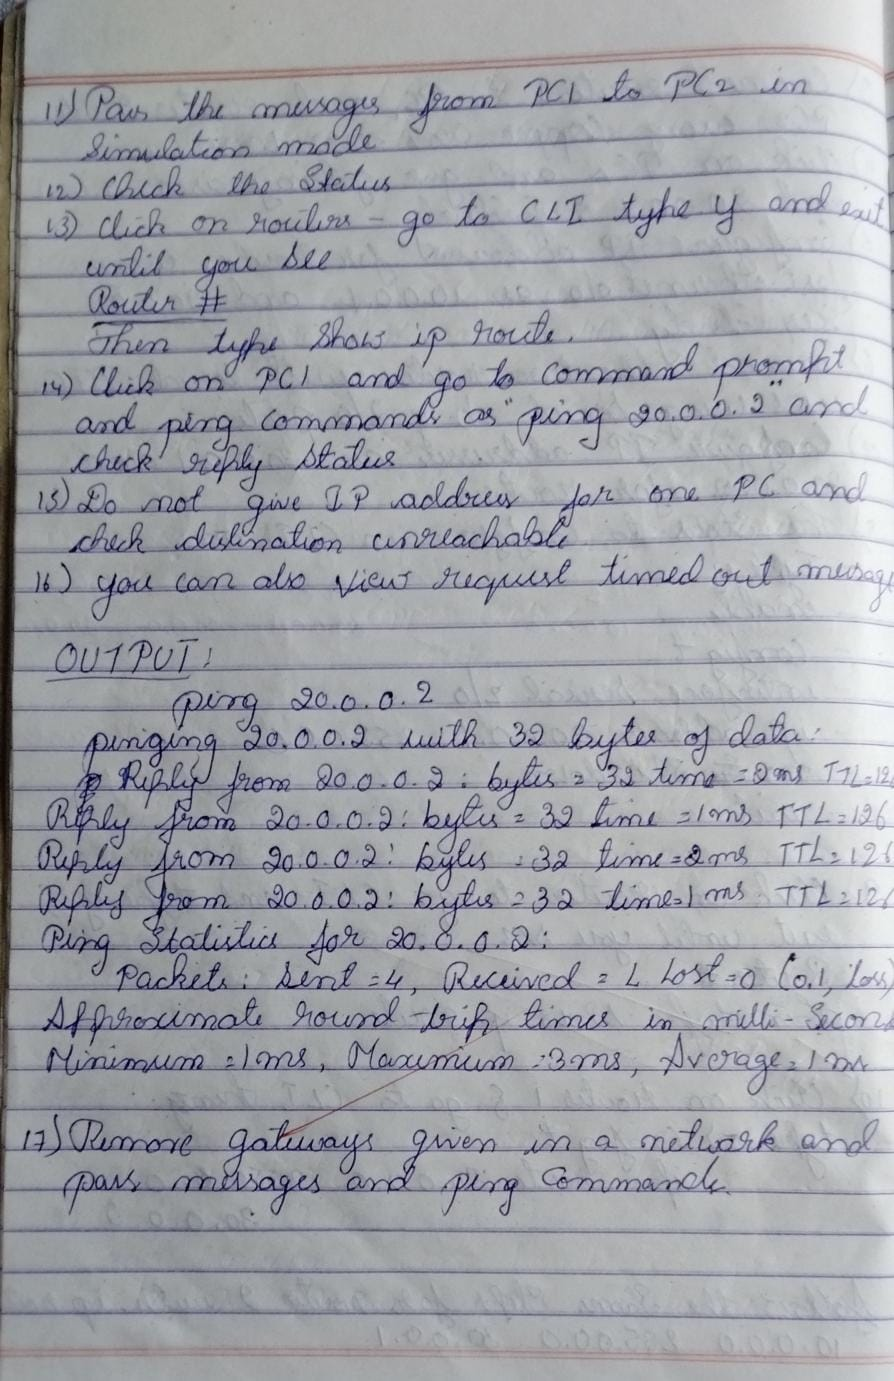 11) Pass the messages from PC1 to PC2 in
Simulation mode
12) Check the Status
13) Click on routers - go to CLI type y and exit
until you see
Router #
Then type Show ip route.
14) Click on PC1 and go to command prompt
and ping commands as "ping 20.0.0.2" and
check reply status
15) Do not give IP address for one PC and
check destination unreachable
16) you can also view request timed out messag
OUTPUT:
ping 20.0.0.2
pinging 20.0.0.2 with 32 bytes of data:
Reply from 20.0.0.2: bytes = 32 time = 2ms TTL=12
Reply from 20.0.0.2: bytes = 32 time = 1ms TTL=126
Reply from 20.0.0.2: bytes = 32 time=2ms TTL=126
Reply from 20.0.0.2: bytes = 32 time=1ms TTL=126
Ping Statistics for 20.0.0.2:
Packets: Sent = 4, Received = Lost=0 (0.1, Loss)
Approximate round-trip times in milli-Secon
Minimum = 1ms, Maximum = 3ms, Average = 1ms
17) Remove gateways given in a network and
pass messages and ping Commands.